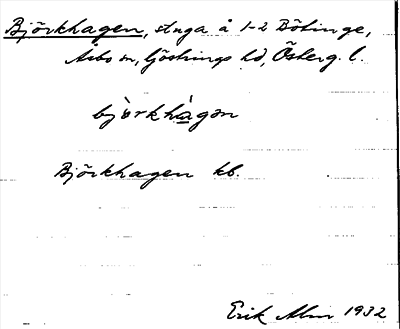 Björkhagen, stuga å 1-2 Bötinge,
Åsbo sn, Göstrings hd, Österg. l.
bjòrkhàgən
Björkhagen kb.
Erik Alm 1932